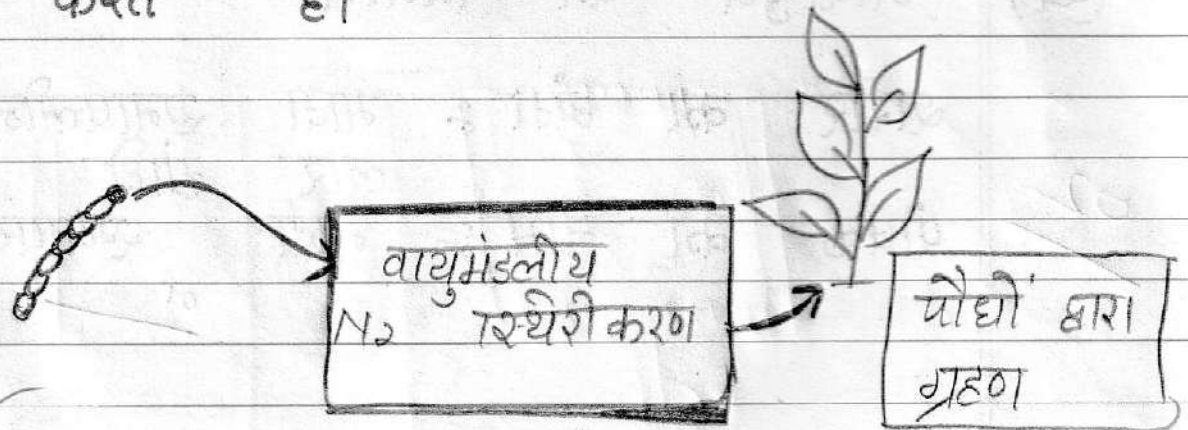 करते हैं।
वायुमंडलीय
N₂ स्थिरीकरण
पौधों द्वारा
ग्रहण